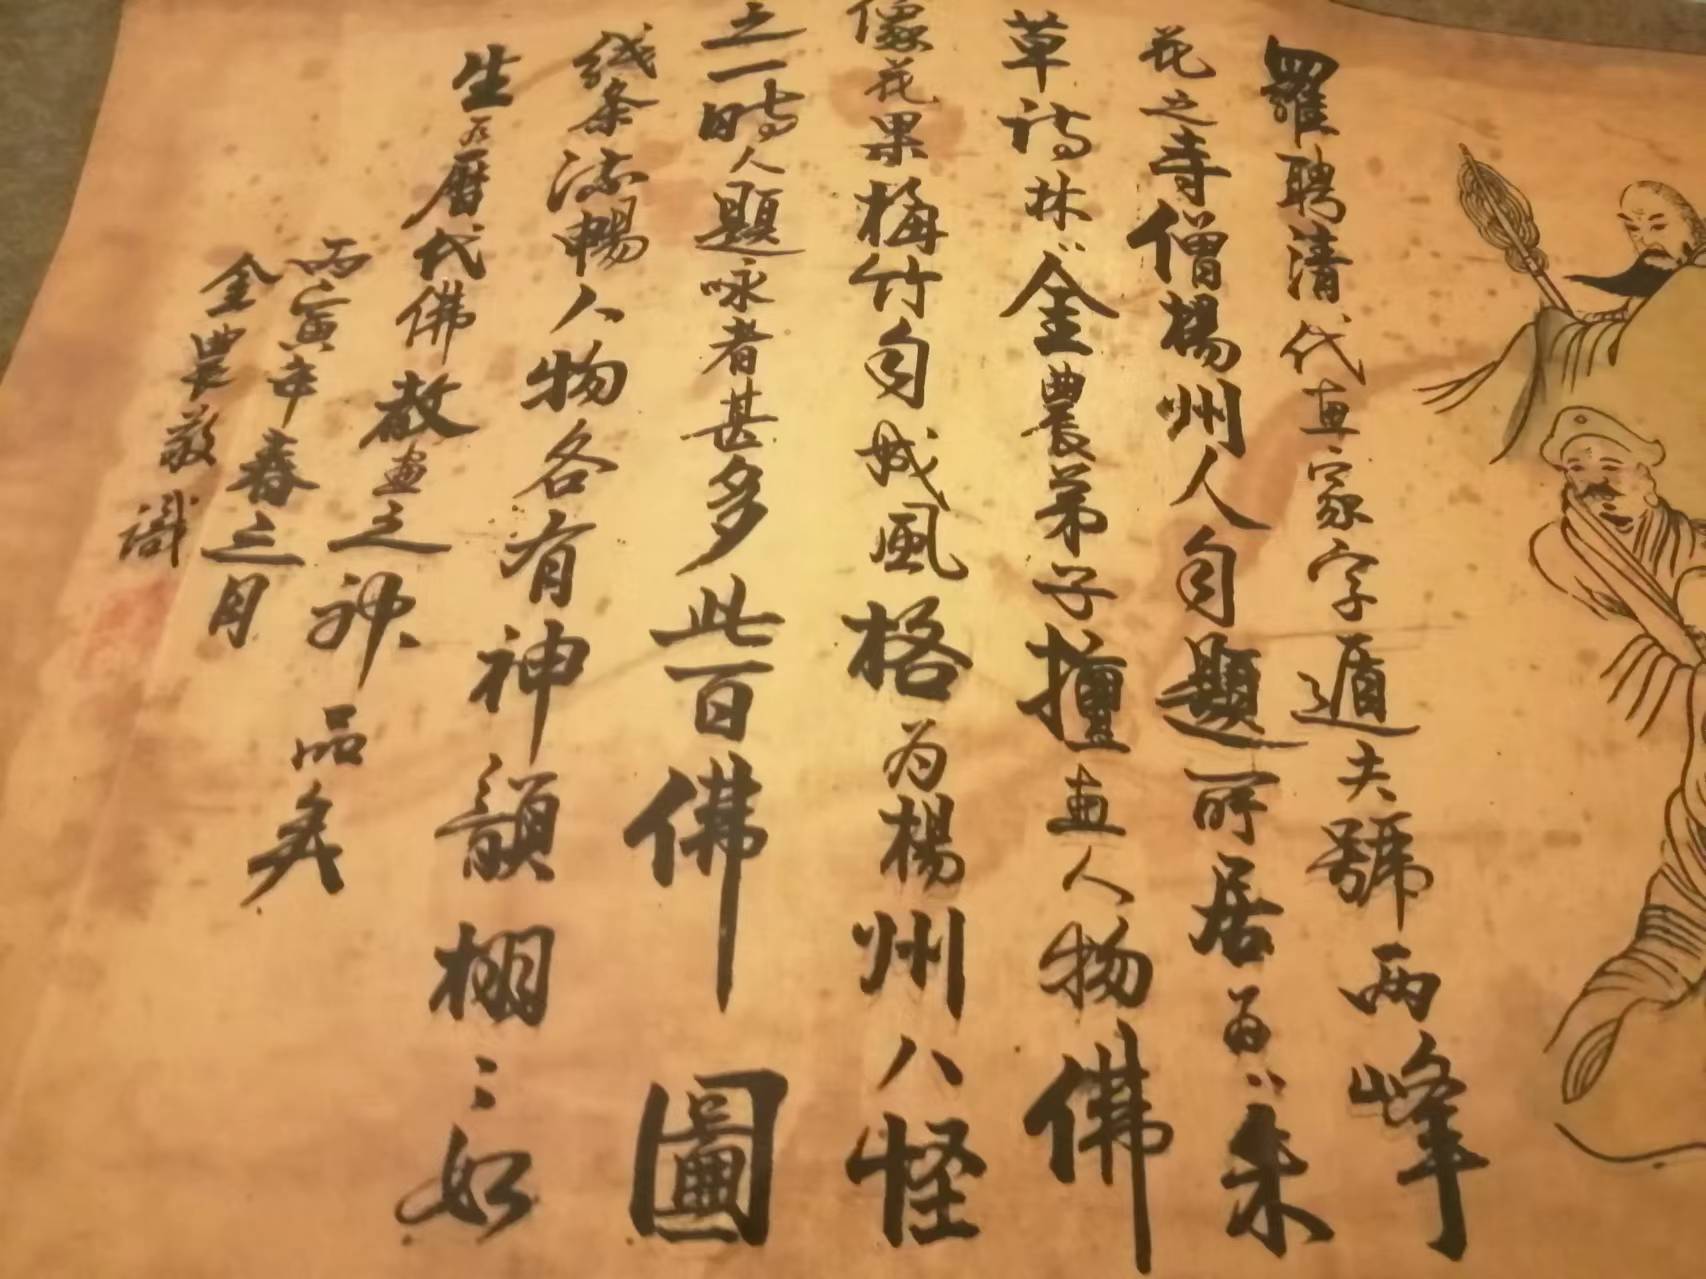 羅聘清代画家字遁夫號兩峰
花之寺僧楊州人自題所居为朱
草诗林金農弟子擅画人物佛
像花果梅竹自成風格为楊州八怪
之一時人題咏者甚多此百佛圖
线条流暢人物各有神韻栩栩如
生乃曆代佛教画之神品矣
丙寅年春三月
金農敬識